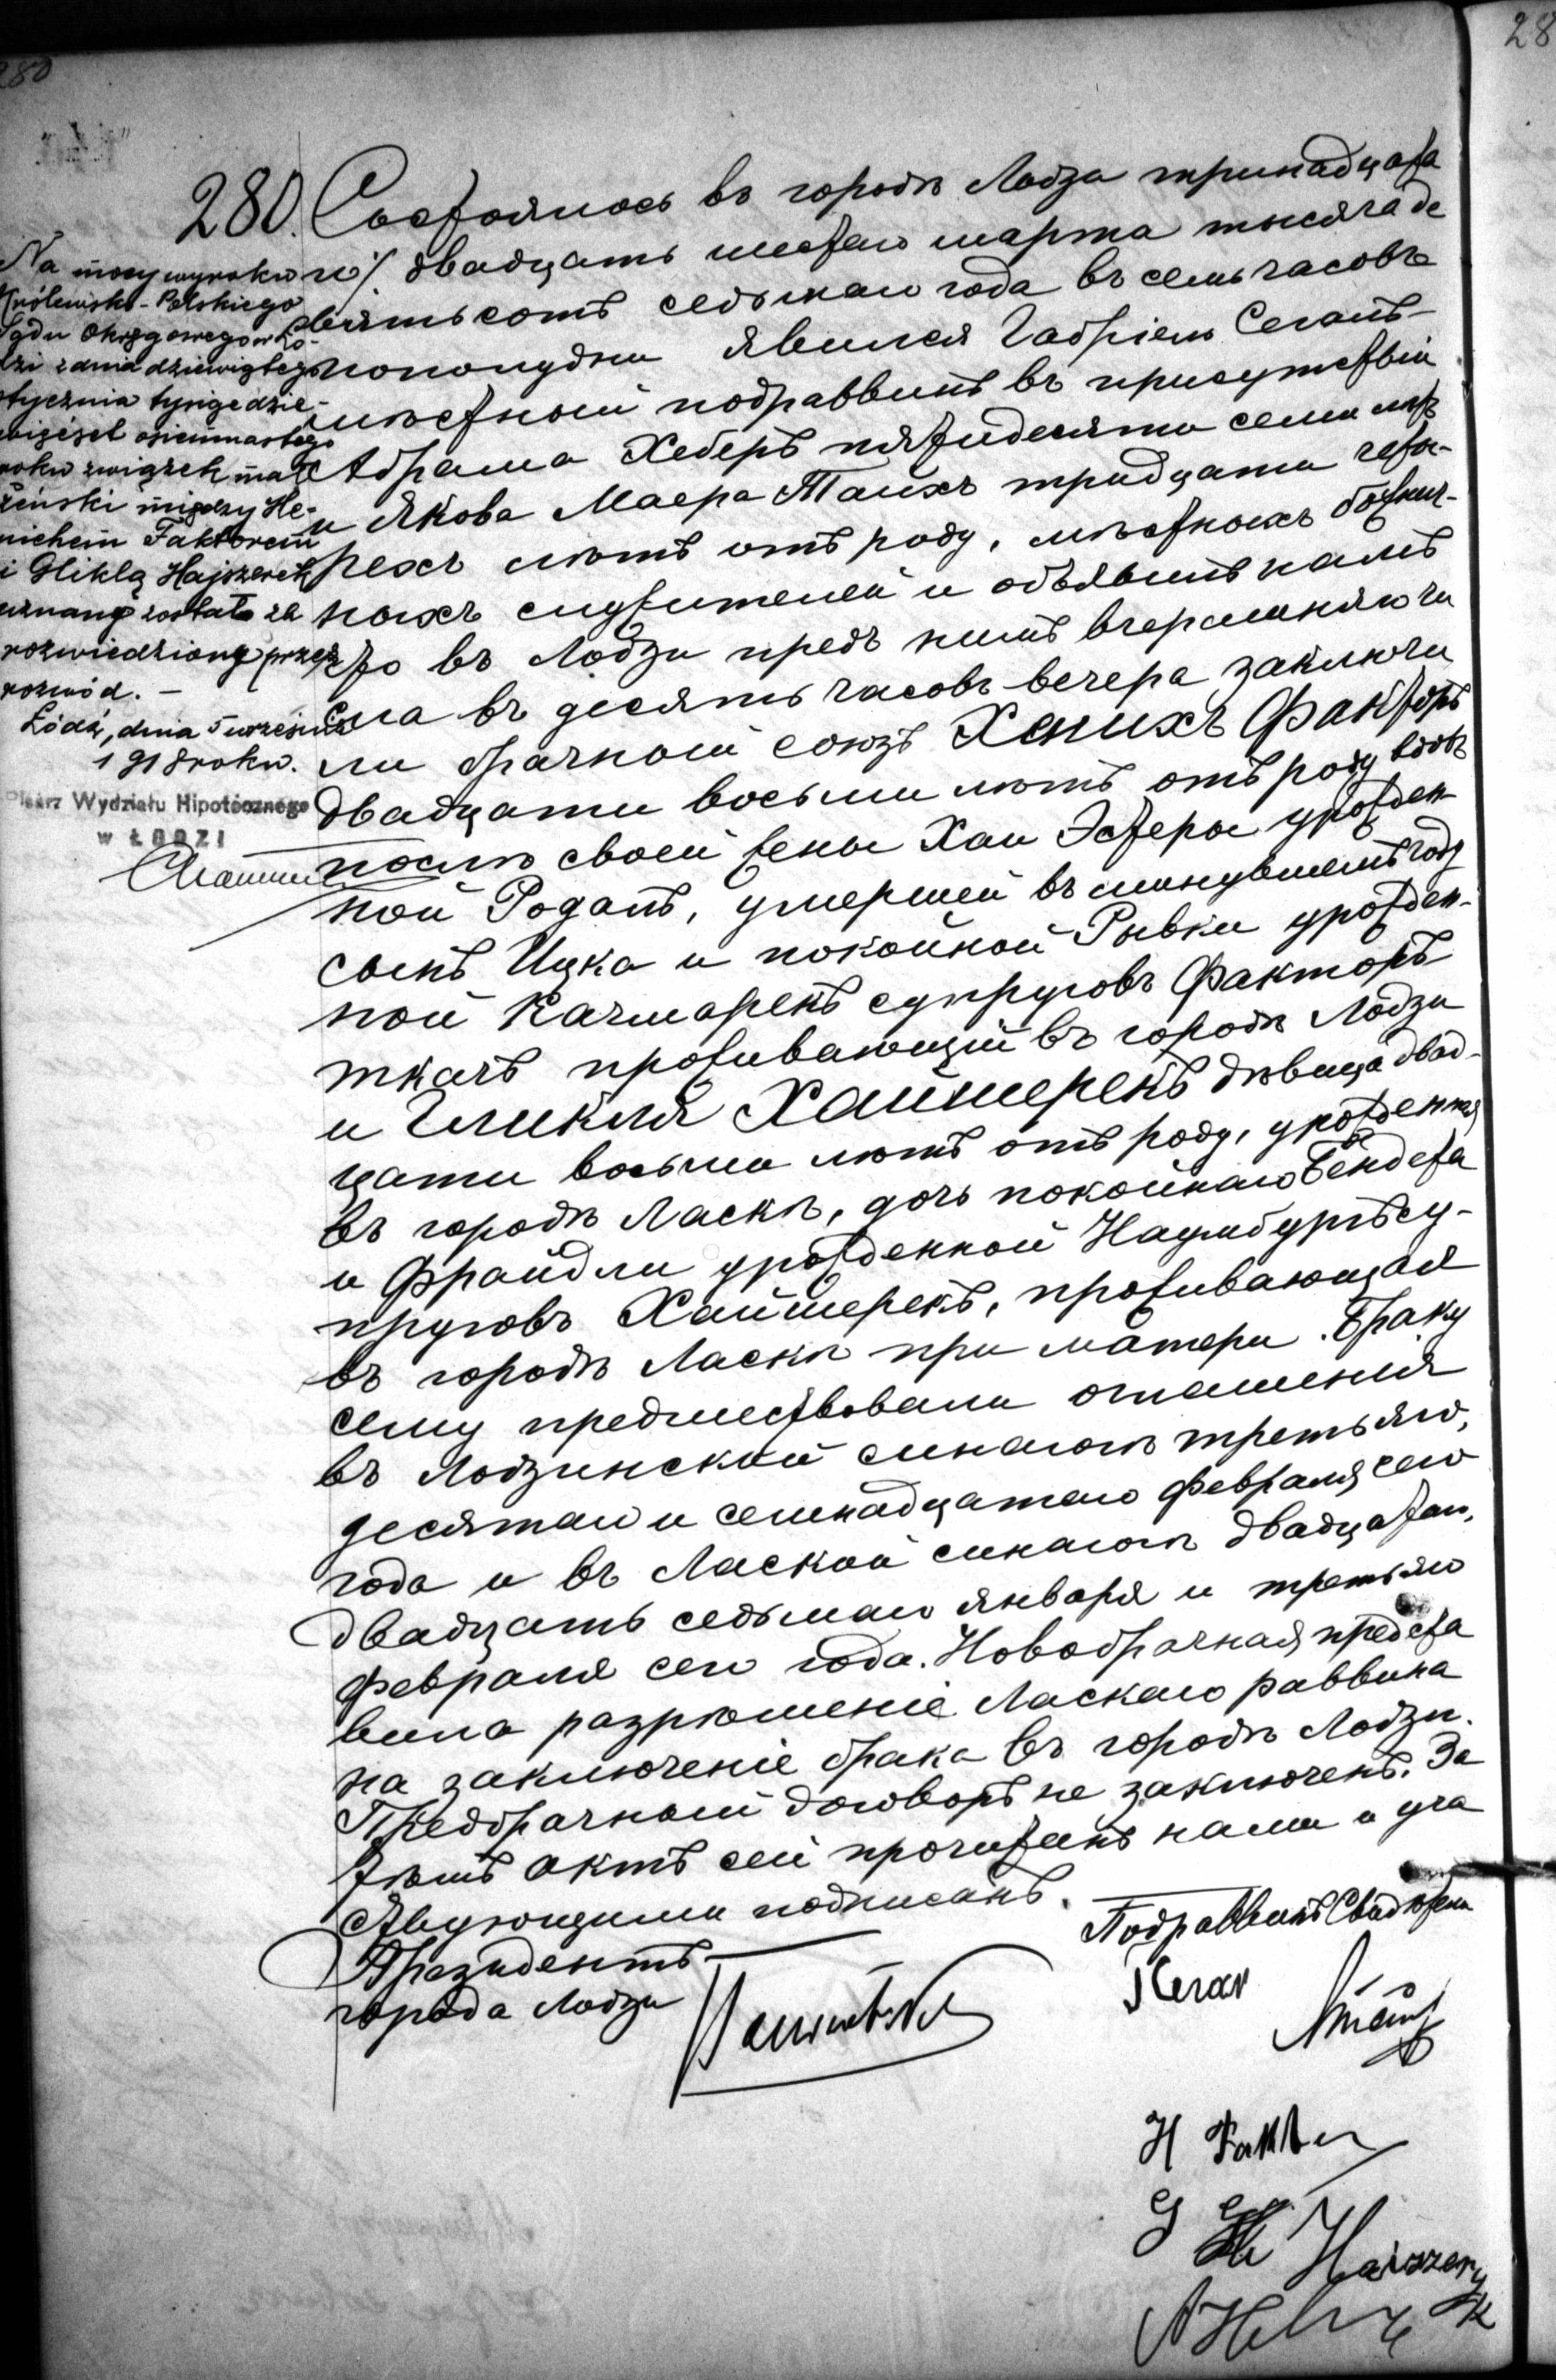 280
28
280. Состоялось въ городѣ Лодзи тринадцата
го/ двадцать шестаго марта тысяча де
вятьсотъ седьмаго года въ семь часовъ
пополудни явился Габріель Сегалъ
мѣстный подраввинъ въ присутствіи
Абрама Хеберъ пятидесяти семи лѣтъ
и Якова Маера Таихъ тридцати четы-
рехъ лѣтъ отъ роду, мѣстныхъ божнич-
ныхъ служителей и объявилъ намъ
что въ Лодзи предъ нимъ вчерашняго чи
сла въ десять часовъ вечера заключи
ли брачный союзъ Хенихъ Факторъ
двадцати восьми лѣтъ отъ роду вдовъ
послѣ своей жены Хаи Эстеры урожден-
ной Родалъ, умершей въ минувшемъ году
сынъ Ицка и покойной Рывки урожден-
ной Качмарекъ супруговъ Факторъ
ткачъ проживающій въ городѣ Лодзи
и Гликля Хайшерекъ дѣвица двад-
цати восьми лѣтъ отъ роду, урожденная
въ городѣ Ласкѣ, дочь покойнаго Бендета
и Фрайдли урожденной Наумбургъ су-
пруговъ Хайшерекъ, проживающая
въ городѣ Ласкѣ при матери. Браку
сему предшествовали оглашенія
въ Лодзинской синагогѣ третьяго,
десятаго и семнадцатаго февраля сего
года и въ Лаской синагогѣ двадцатаго,
двадцать седьмаго января и третьяго
февраля сего года. Новобрачная предста
вила разрѣшеніе Ласкаго раввина
на заключеніе брака въ городѣ Лодзи.
Предбрачный договоръ не заключенъ. За
тѣмъ актъ сей прочитанъ нами и уча
ствующими подписанъ.
Президентъ
города Лодзи
Подраввинъ Свидѣтели
H Faktor
G Hajszeryk
Na mocy wyroku
Królewsko-Polskiego
Sądu Okręgowego w Ło-
dzi z dnia dziewiątego
stycznia tysiąc dzie-
więćset osiemnastego
roku związek mał
żeński między He-
nichem Faktorem
i Gliklą Hajszerek
uznany został za
rozwiedziony przez
rozwód. —
Łódź, dnia 5 września
1918 roku.
Pisarz Wydziału Hipotecznego
w ŁODZI